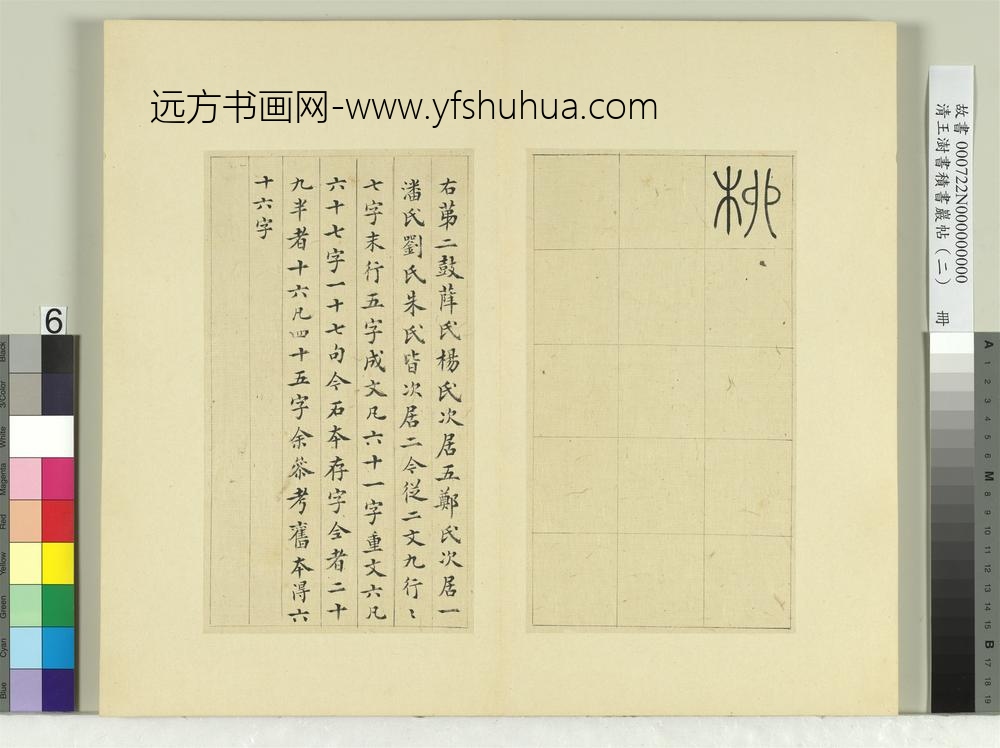 远方书画网-www.yfshuhua.com
故書 000722N000000000
清王澍書積書巖帖（二） 冊
右苐二鼓薛氏楊氏次居五鄭氏次居一
潘氏劉氏朱氏皆次居二今從二文九行〻
七字末行五字成文凡六十一字重文六凡
六十七字一十七句今石本存字全者二十
九半者十六凡四十五字余叅考舊本得六
十六字
6
Black
3/Color
White
Magenta
Red
Yellow
Green
Cyan
Blue
A
1
2
3
4
5
6
M
8
9
10
11
12
13
14
15
B
17
18
19